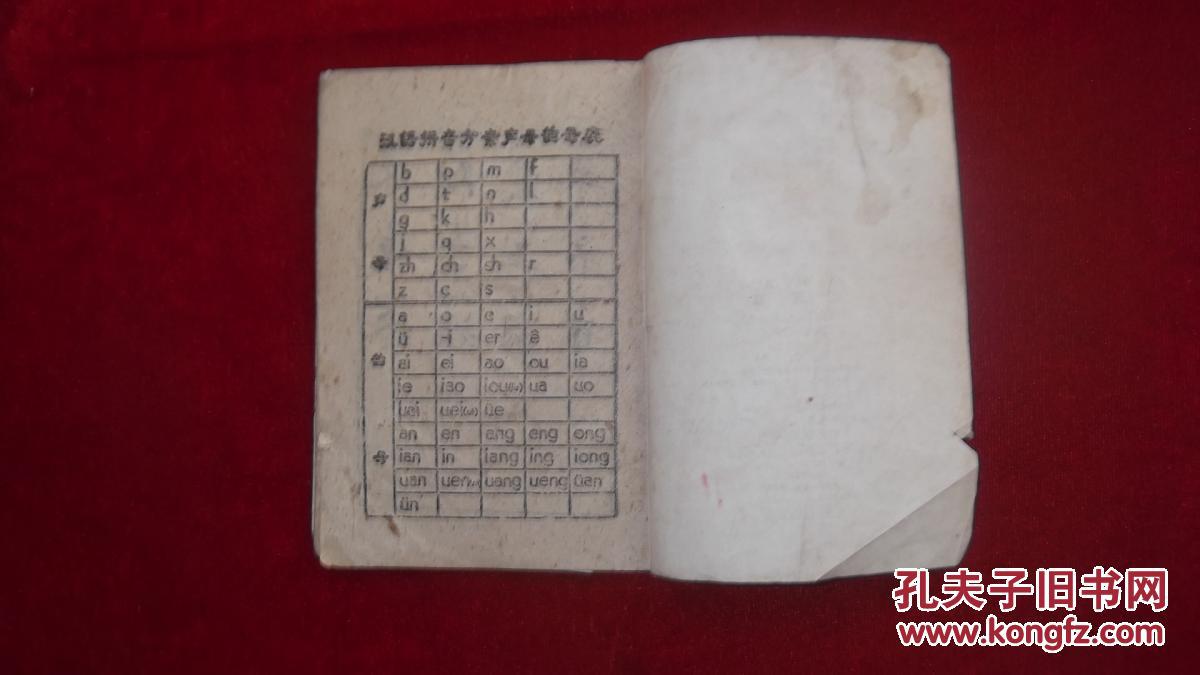 汉語拼音方案声母韵母表
声母
b p m f
d t n l
g k h
j q x
zh ch sh r
z c s
韵母
a o e i u
ü -i er ê
ai ei ao ou ia
ie iao iou(iu) ua uo
uai uei(ui) üe
an en ang eng ong
ian in iang ing iong
uan uen(un) uang ueng üan
ün
孔夫子旧书网
www.kongfz.com